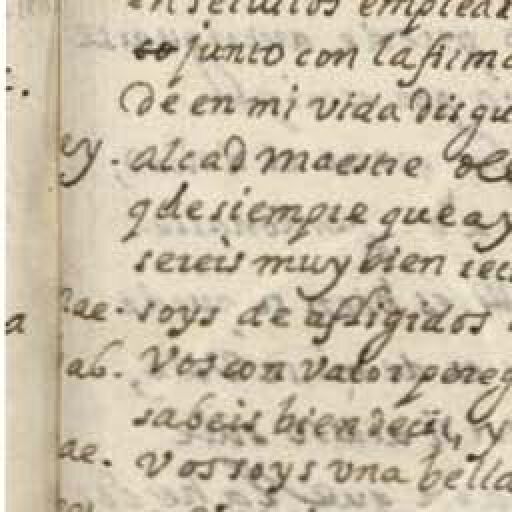 en servicios emplear
co junto con la firma
de en mi vida disgu
y. alcad maestre
q desiempre que ay
sereis muy bien rec
ae. soys de afligidos
ab. Vos con valor pereg
sabeis bien decir, y
ae. Vos soys vna bella